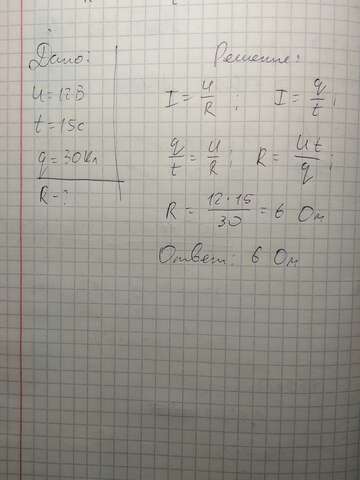 Дано:
U = 12 В
t = 15 с
q = 30 Кл
R - ?
Решение:
I = U/R ; I = q/t ;
q/t = U/R ; R = Ut/q ;
R = 12 · 15/30 = 6 Ом
Ответ: 6 Ом